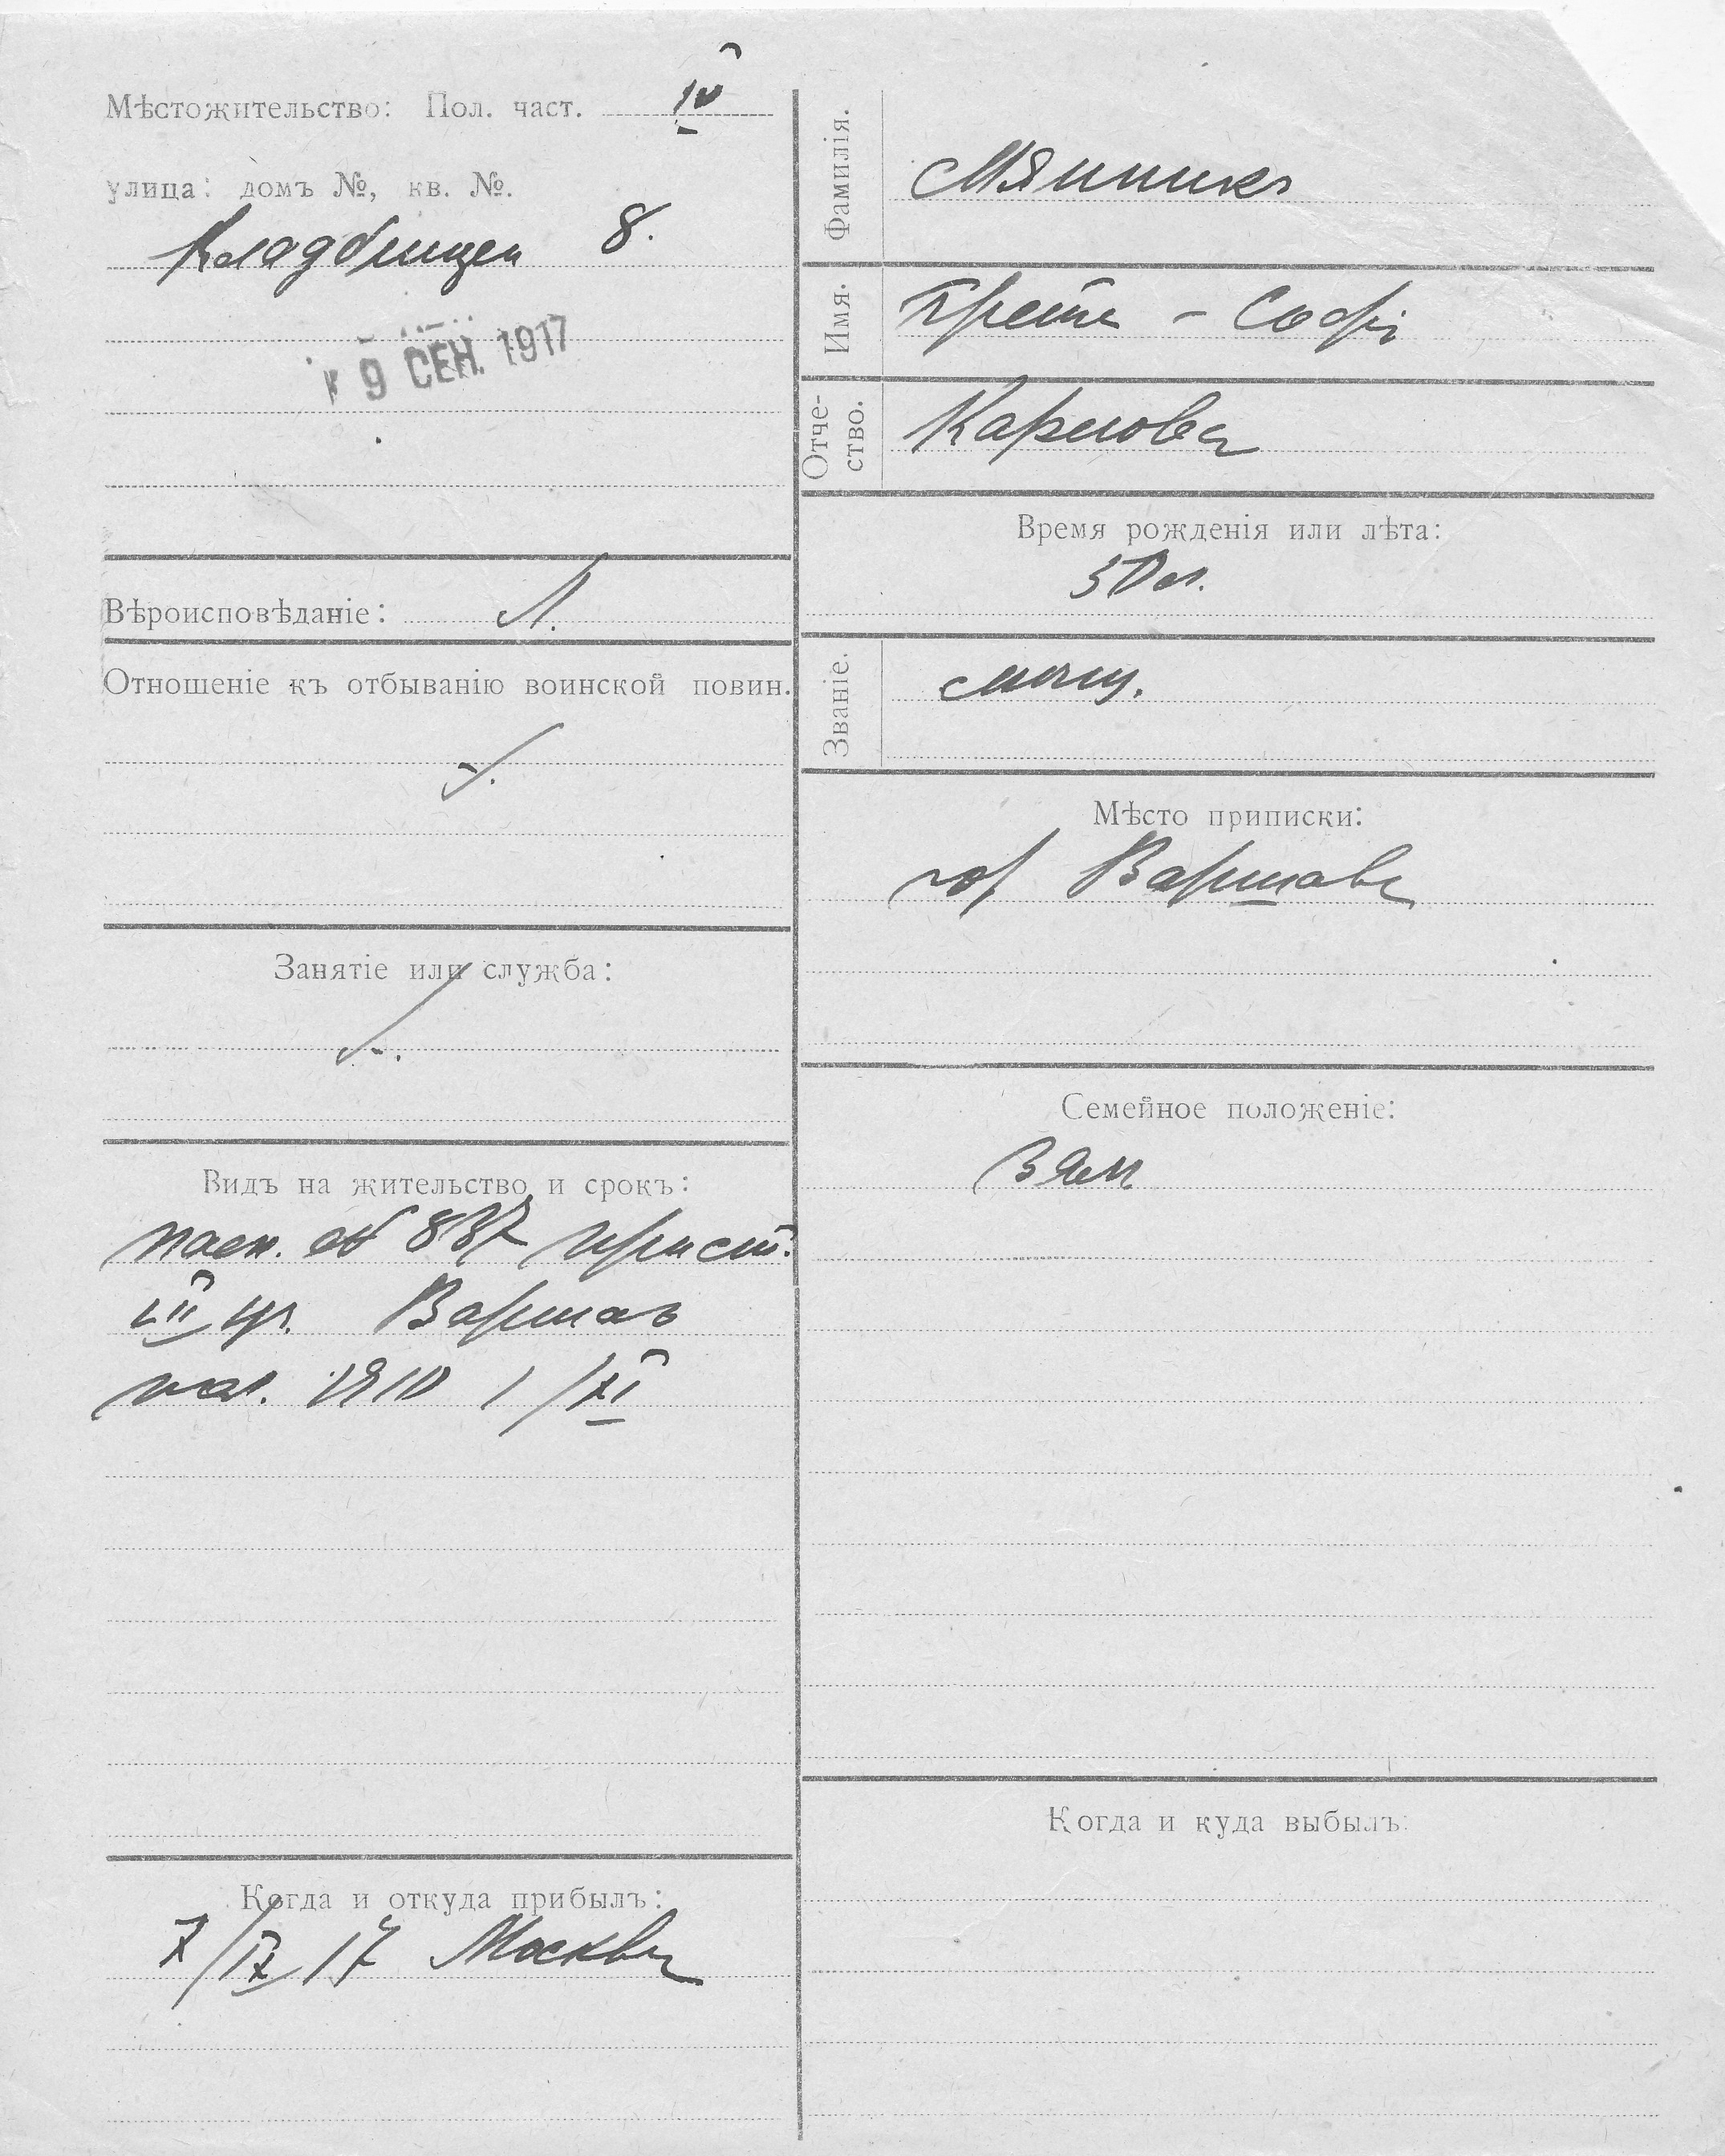 Мѣстожительство: Пол. част. IV
улица: домъ №, кв. №.
Кладбищен 8.
9 СЕН. 1917
Вѣроисповѣданіе: Л.
Отношеніе къ отбыванію воинской повин.
Занятіе или служба:
Видъ на жительство и срокъ:
№ 837 прист.
III уч. Варшав
1910 1/XI
Когда и откуда прибылъ:
7/IX 17 Москвы
Фамилія.
Мянникъ
Имя.
Грета - Софі
Отче-
ство.
Карловна
Время рожденія или лѣта:
50 л.
Званіе.
мѣщ.
Мѣсто приписки:
гор Варшава
Семейное положеніе:
зам
Когда и куда выбылъ: